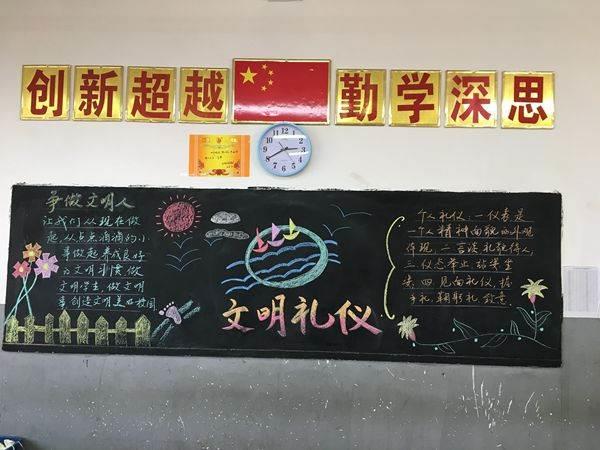 创新超越
勤学深思
争做文明人
让我们从现在做
起,从点点滴滴的小
事做起养成良好
的文明习惯做
文明学生,做文明
事创造文明美好校园
文明礼仪
个人礼仪:一仪表是
一个人精神面貌的外观
体现,二言谈礼敬待人,
三,仪态举止站坐
四.见面礼仪,握
手礼,鞠躬礼,致意.